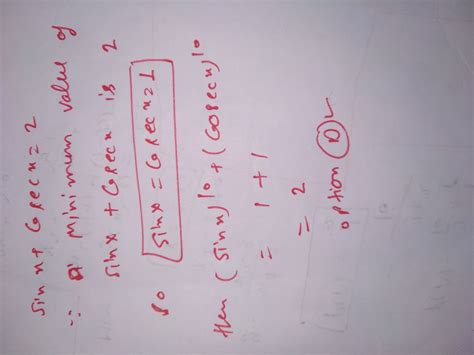 sin x + Cosec x = 2
∵ minimum value of
sin x + Cosec x is 2
so sin x = Cosec x = 1
then (sin x)^10 + (Cosec x)^10
= 1 + 1
= 2
option (D) ✓